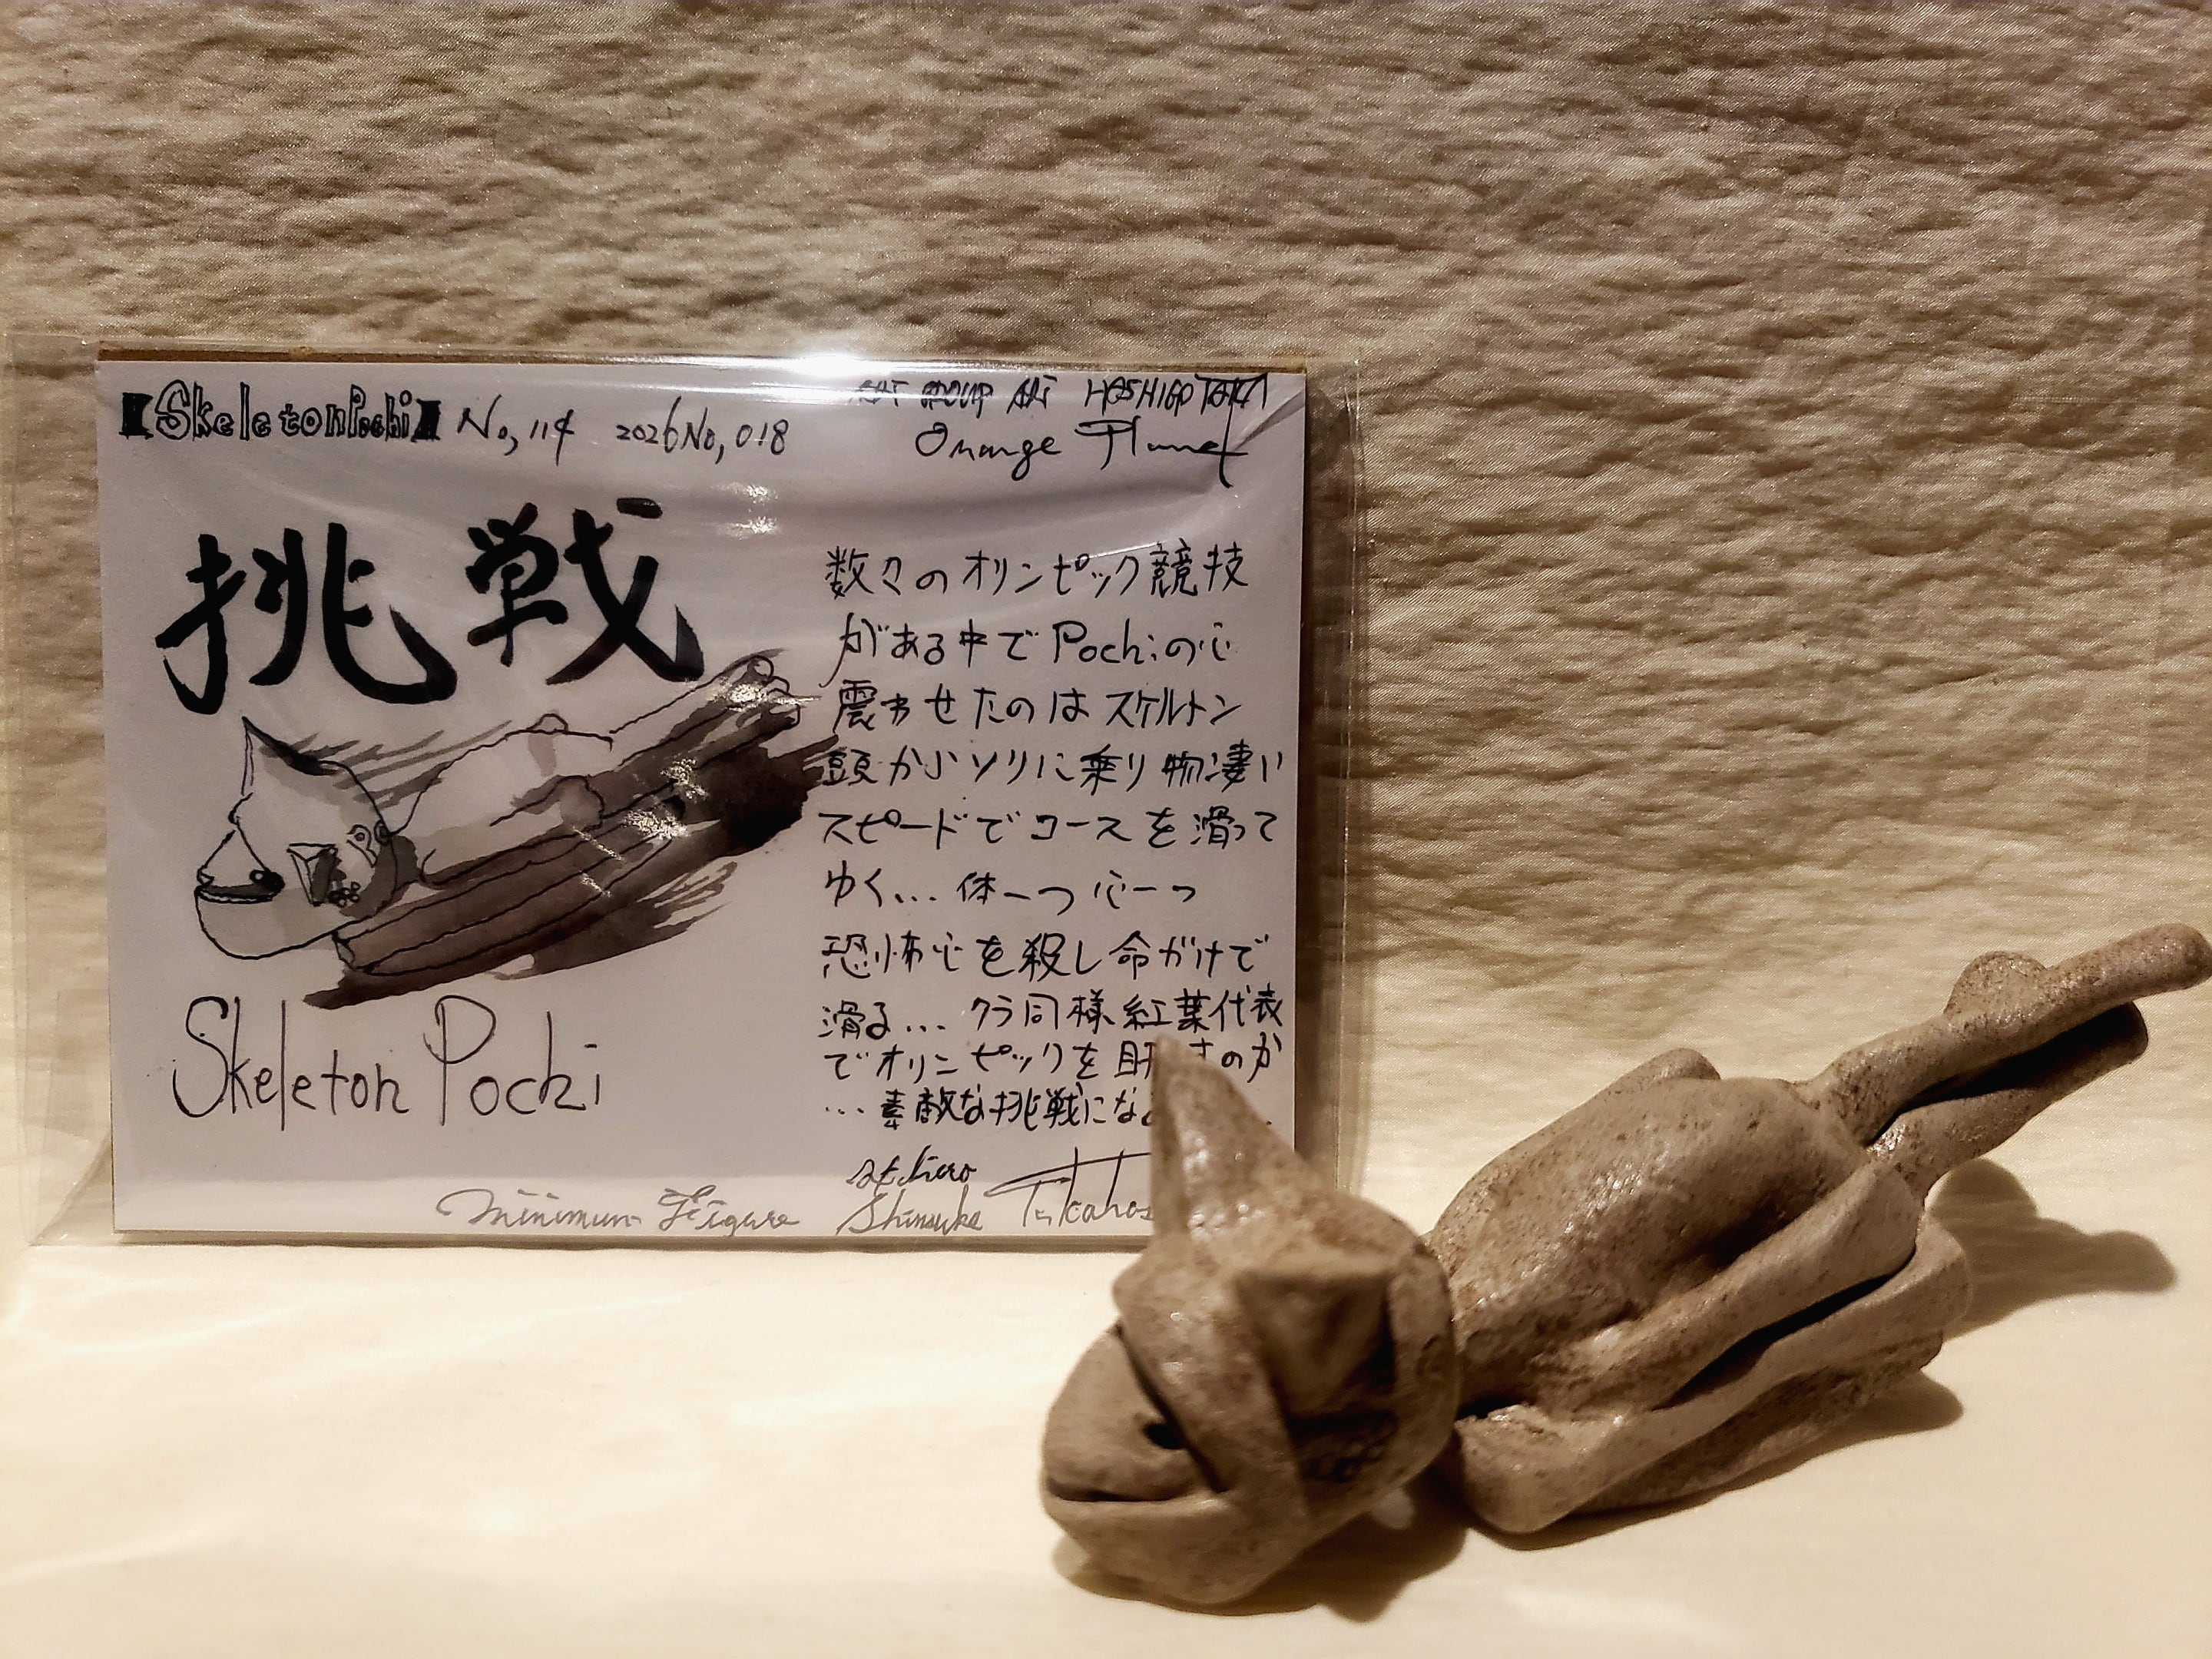 【SkeletonPochi】 No,114 2026No,018
ART GROUP HOSHIGOTAKA
Orange Planet
挑戦
数々のオリンピック競技
がある中でPochiの心
震わせたのはスケルトン
頭から小ソリに乗り物凄い
スピードでコースを滑って
ゆく... 体一つ 心一つ
恐怖心を殺し命がけで
滑る... クラ同様紅葉代表
でオリンピックを目 すのか
... 素敵な挑戦にな
Skeleton Pochi
Minimum Figure Shinsuke